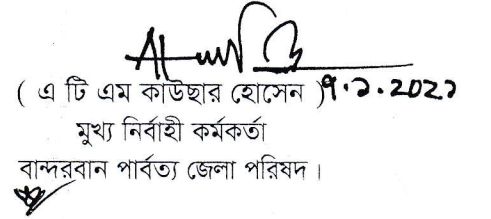 ( এ টি এম কাউছার হোসেন )৭.১.২০২১
মুখ্য নির্বাহী কর্মকর্তা
বান্দরবান পার্বত্য জেলা পরিষদ।